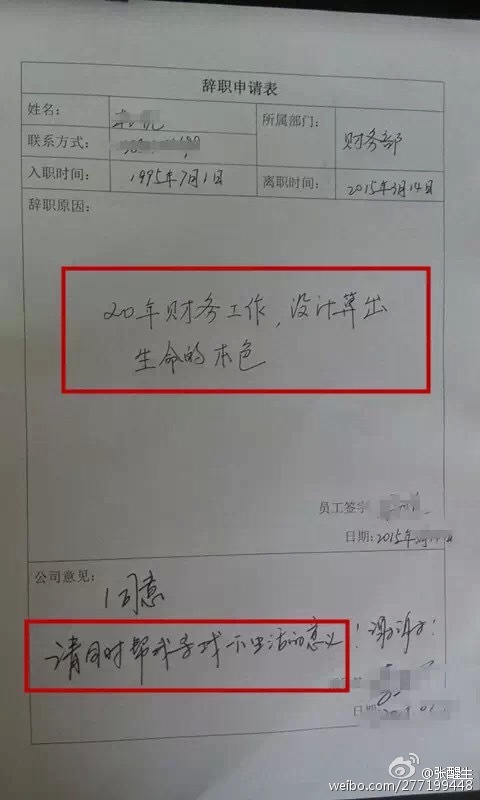 辞职申请表
姓名：
所属部门：
财务部
联系方式：
入职时间：
1995年7月1日
离职时间：
2015年3月14日
辞职原因：
20年财务工作，没计算出
生命的本色
员工签字
日期：2015年
公司意见：
同意
请同时帮我寻找一下生活的意义！谢谢！
日期
@张醒生
weibo.com/277199448